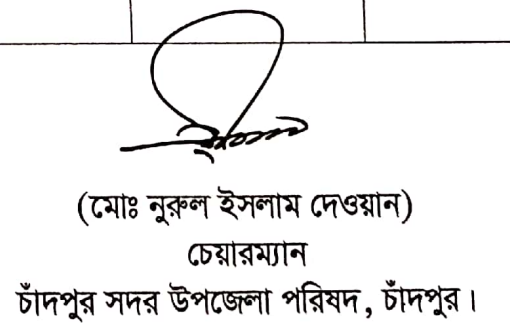 (মোঃ নুরুল ইসলাম দেওয়ান)
চেয়ারম্যান
চাঁদপুর সদর উপজেলা পরিষদ, চাঁদপুর।